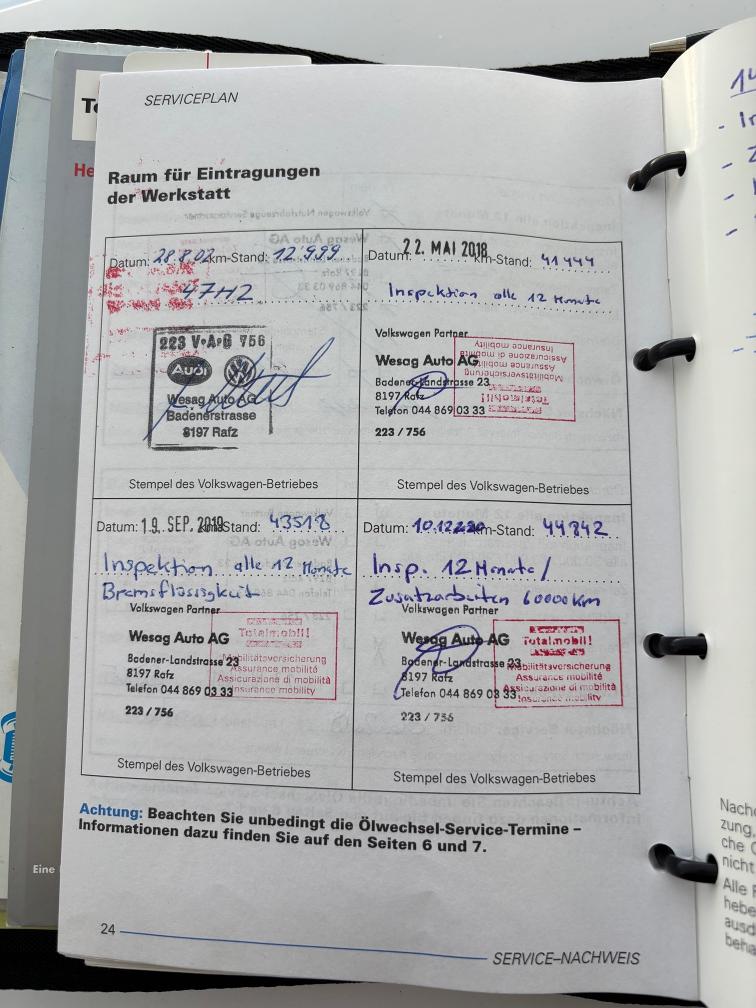 SERVICEPLAN
Raum für Eintragungen
der Werkstatt
Datum: 28.8.02 km-Stand: 12'999
47H2
223 V·A·G 756
Audi
Wesag Auto AG
Badenerstrasse
8197 Rafz
Stempel des Volkswagen-Betriebes
Datum: 22. MAI 2018 km-Stand: 41444
Inspektion alle 12 Monate
Volkswagen Partner
Wesag Auto AG
Badener-Landstrasse 23
8197 Rafz
Telefon 044 869 03 33
223 / 756
Totalmobil!
Mobilitätsversicherung
Assurance mobilité
Assicurazione di mobilità
Insurance mobility
Stempel des Volkswagen-Betriebes
Datum: 19. SEP. 2019 km-Stand: 43518
Inspektion alle 12 Monate
Bremsflüssigkeit
Volkswagen Partner
Wesag Auto AG
Badener-Landstrasse 23
8197 Rafz
Telefon 044 869 03 33
223 / 756
Totalmobil!
Mobilitätsversicherung
Assurance mobilité
Assicurazione di mobilità
Insurance mobility
Stempel des Volkswagen-Betriebes
Datum: 10.12.2020 km-Stand: 44842
Insp. 12 Monate /
Zusatzarbeiten 60000km
Volkswagen Partner
Wesag Auto AG
Badener-Landstrasse 23
8197 Rafz
Telefon 044 869 03 33
223 / 756
Totalmobil!
Mobilitätsversicherung
Assurance mobilité
Assicurazione di mobilità
Insurance mobility
Stempel des Volkswagen-Betriebes
Achtung: Beachten Sie unbedingt die Ölwechsel-Service-Termine –
Informationen dazu finden Sie auf den Seiten 6 und 7.
24
SERVICE–NACHWEIS
Eine
He
zung,
che
nicht
Alle